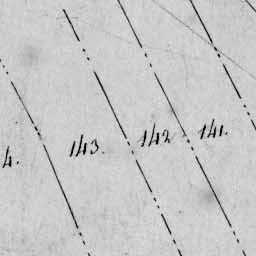 4. 143. 142 141.